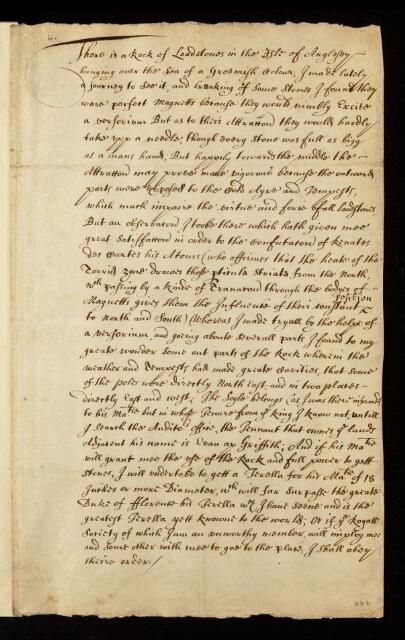 There is a Rock of Loadstones in the Isle of Anglesey
hanging over the Sea of a Greenish Colour, I made lately
a journey to See it, and breaking of Some Stones I found they
were perfect Magnetts because they would nimbly Excite
a versorium But as to their Attraction they would hardly
take upp a needle, though every Stone was full as bigg
as a mans hand; But happily towards the middle the
Attraction may prove more vigorous because the outward
parts were exposed to the Cold Ayre and Tempests,
which much impaire the virtue and force of all Loadstones
But an observation I tooke there which hath given mee
great Satisfaction in order to the Confutation of Renates
des Cartes his Atoms (who affirmes that the heate of the
Torrid zone draws those Striata, from the North,
wch passing by a kinde of through the bodyes of
Magnetts gives them the Influence of their constant position
to north and South) Whereas I made tryall by the helpe of
a versorium, and going aboute Severall parts I found to my
greate wonder Some out parts of the Rock wherein the
weather and Tempests had made greate Cavities, that Some
of the poles were directly North East, and in two places
directly East and West; The Soyle belongs (as I was there informed)
to his Matie but in whose Tenure from ye king I know not, untill
I Search the Auditors office, the Tennant that ownes ye lands
adjacent his name is Evan ap Griffith; And if his Matie
will grant mee the use of the Rock and full power to gett
Stones, I will undertake to gett a Terella for his Matie of 18
Inches or more Diameter, wch will far Surpasse the greate
Duke of Florence his Terella wch I have Seene and is the
greatest Terella yett knowne to the world; Or if ye Royall
Society of which I am an unworthy member, will imploy mee
and Some other with mee to goe to the place, I shall obey
theire order./